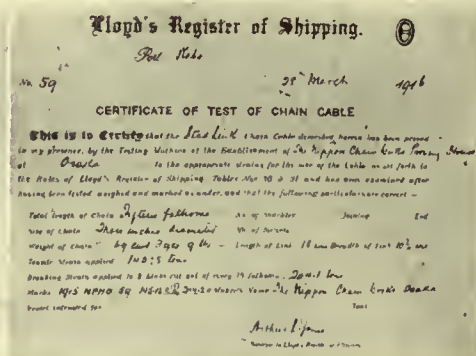 Lloyd's Register of Shipping.
Port Kobe
No. 59 28th March 1916
CERTIFICATE OF TEST OF CHAIN CABLE
This is to Certify that the Stud Link Chain Cable described hereon has been proved
in my presence, by the Testing Machine at the Establishment of The Nippon Chain Works Proving House
at Osaka to the appropriate strains for the size of the Cable as set forth in
the Rules of Lloyd's Register of Shipping Tables Nos 30 & 31 and has been examined after
having been tested weighed and marked as under, and that the following particulars are correct —
Total length of Chain Fifteen fathoms No of Shackles Joining End
Size of Chain Three inches diameter No of Swivels
Weight of Chain cwt 3 qrs 9 lbs — Length of Link 18 ins Breadth of Link 10 ins
Tensile Strain applied tons
Breaking Strain applied to 3 links cut out of every 15 fathoms. tons
Marks Maker's Name The Nippon Chain Works Osaka
Vessel intended for
Arthur L. Jones
Surveyor to Lloyd's Register of Shipping